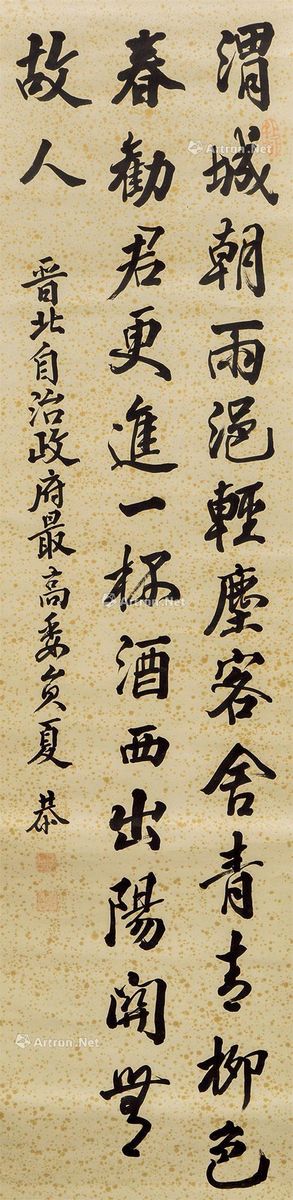 渭城朝雨浥輕塵客舍青青柳色
春勸君更進一杯酒西出陽關無
故人
晉北自治政府最高委員夏恭
Artron.Net
Artron.Net
Artron.Net